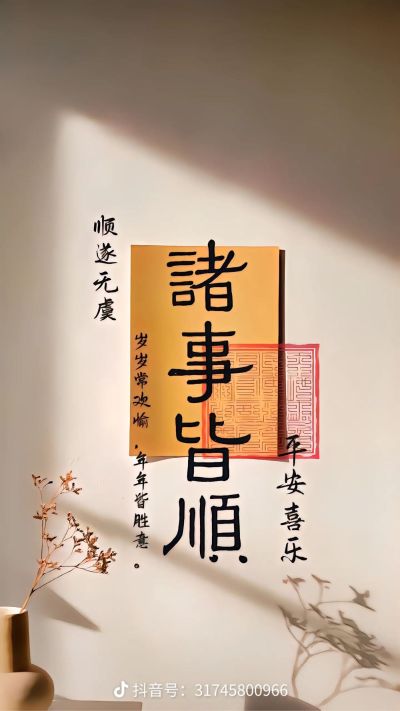 顺遂无虞
諸事皆順
岁岁常欢愉，年年皆胜意。
平安喜乐
抖音号：31745800966